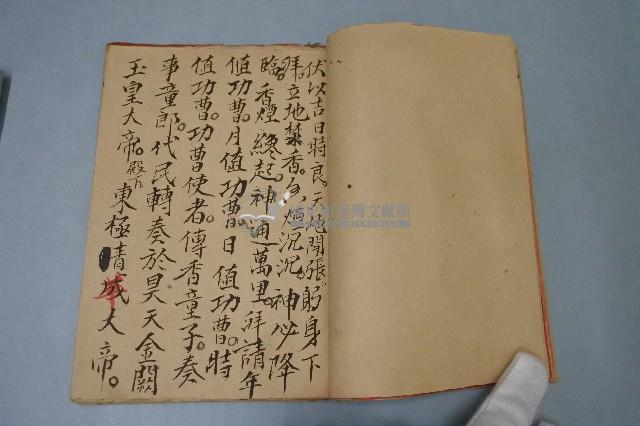 伏以吉日時良。天地開張。躬身下
拜。立地焚香。香煙沉沉。神必降
臨。香煙纔起。神通萬里。拜請年
值功曹。月值功曹。日值功曹。時
值功曹。功曹使者。傳香童子。奏
事童郎。代民轉奏於昊天金闕
玉皇大帝。殿下
東極青華大帝。